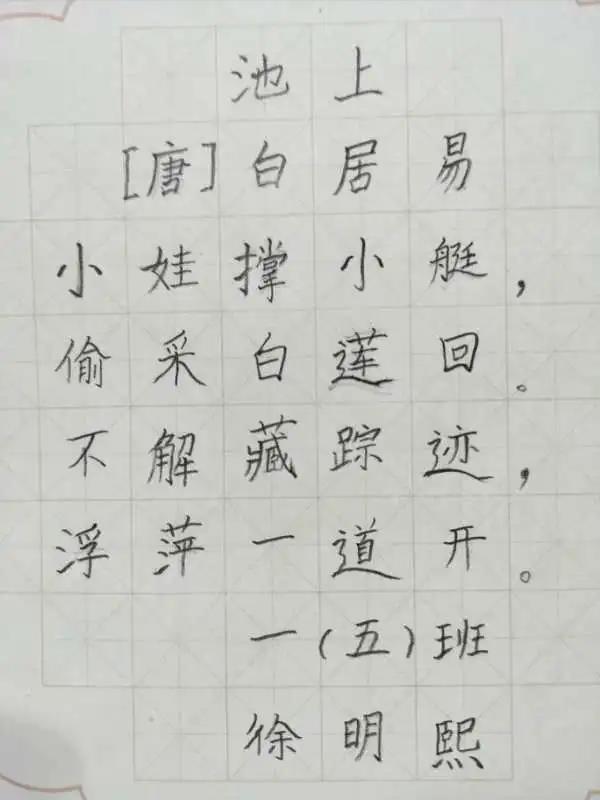 池上
[唐]白居易
小娃撑小艇，
偷采白莲回。
不解藏踪迹，
浮萍一道开。
一(五)班
徐明熙